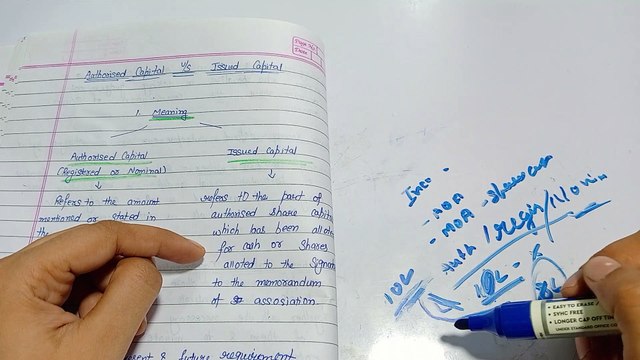 Page No.
Date
Authorised Capital v/s Issued Capital
1. Meaning
Authorised Capital
(Registred or Nominal)
Refers to the amount
mentioned or stated in
the
Issued Capital
refers to the part of
authorised share capital
which has been allotted
for cash or shares
alloted to the
to the memorandum
of association
& future requirement
- AOA
- MOA
10L
10L
EASY TO ERASE
SYNC FREE
LONGER CAP OFF TIME
UNDER STANDARD OFFICE CO